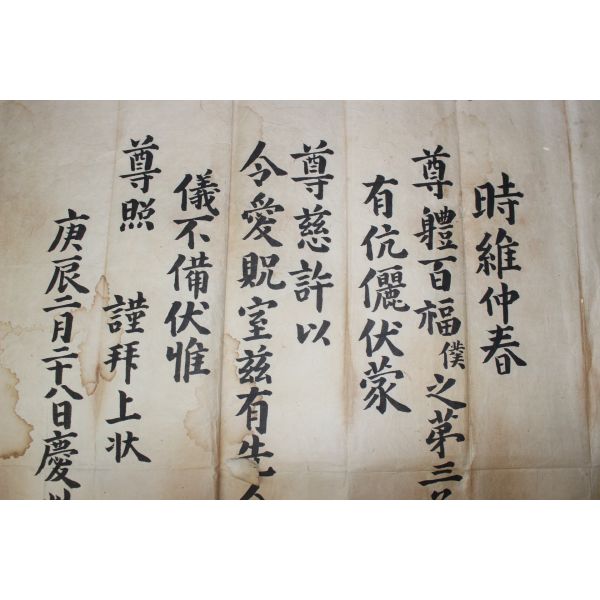 時維仲春
尊體百福僕之第三
有伉儷伏蒙
尊慈許以
令愛貺室茲有先
儀不備伏惟
尊照　謹拜上狀
庚辰二月二十八日慶